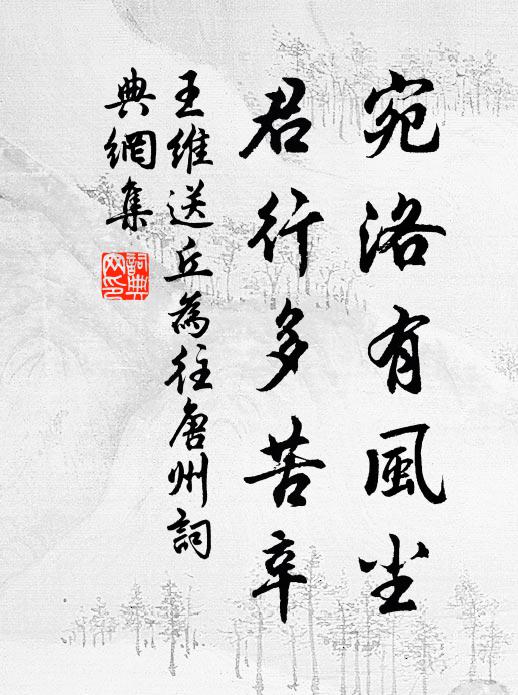 宛洛有風尘
君行多苦辛
王維送丘為往唐州詞
典網集
詞典
网印